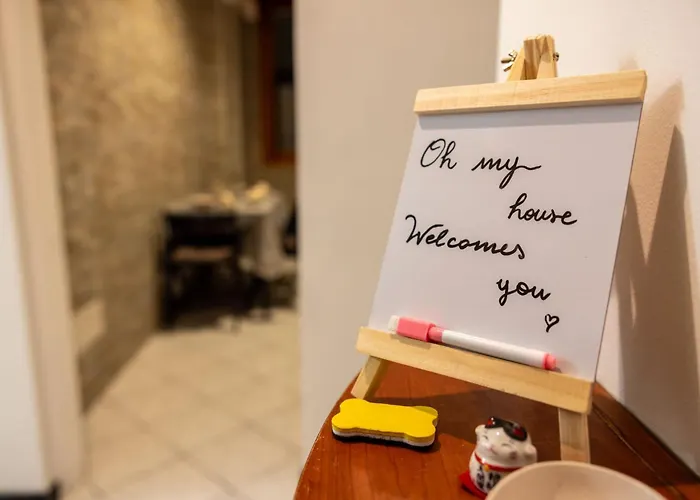 Oh my
house
Welcomes
you